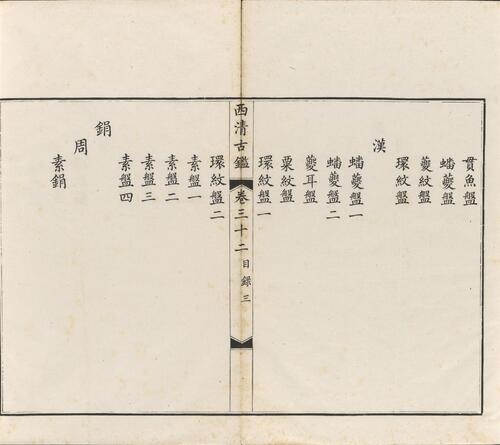 貫魚盤
蟠夔盤
夔紋盤
環紋盤
漢
蟠夔盤一
蟠夔盤二
夔耳盤
粟紋盤
環紋盤一
西清古鑑
卷三十二
目錄三
環紋盤二
素盤一
素盤二
素盤三
素盤四
鋗
周
素鋗